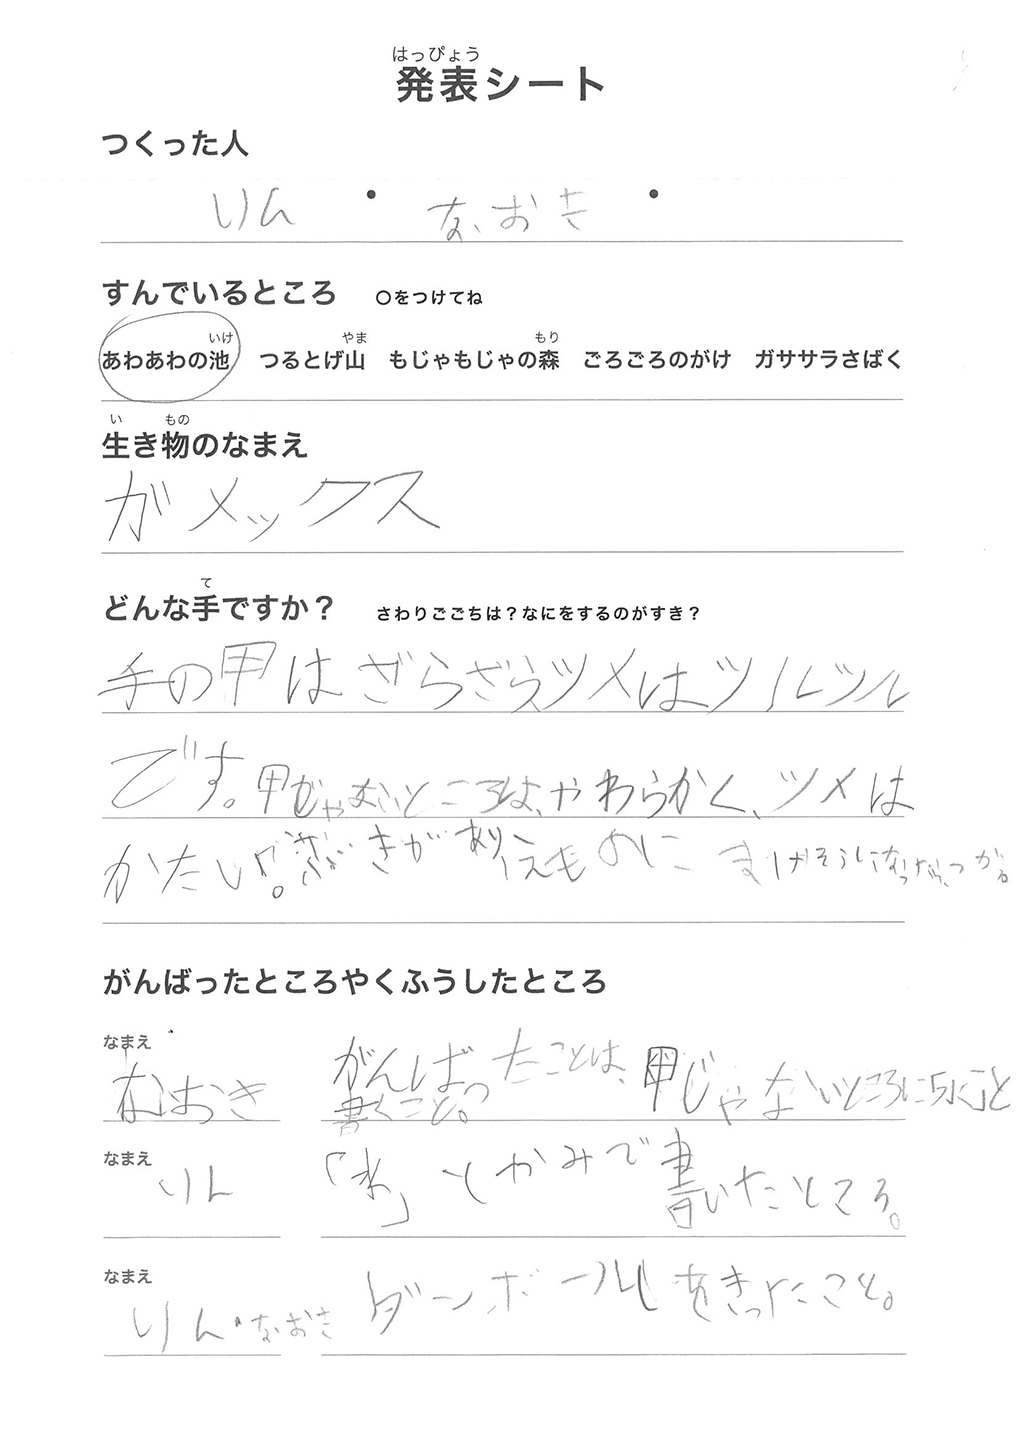 はっぴょう
発表シート
つくった人
りん ・ なおき ・
すんでいるところ 〇をつけてね
いけ やま もり
あわあわの池 つるとげ山 もじゃもじゃの森 ごろごろのがけ ガササラさばく
い もの
生き物のなまえ
ガメックス
て
どんな手ですか？ さわりごごちは？なにをするのがすき？
手の甲はざらざらツメはツルツル
です。甲じゃないところは、やわらかく、ツメは
かたい。 きが あり えものに まけそうになったら、つかう。
がんばったところやくふうしたところ
なまえ
なおき がんばったことは、甲じゃないところに
書くこと。
なまえ
りん 「水」とかみで書いたところ。
なまえ
りん・なおき ダンボールをきったこと。